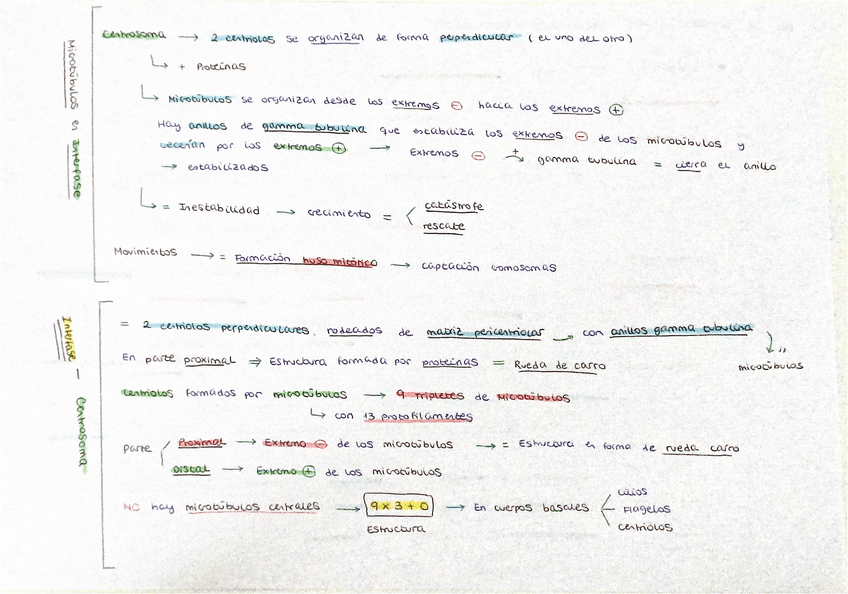 Microtúbulos en Interfase
Centrosoma → 2 centriolos se organizan de forma perpendicular (el uno del otro)
↳ + Proteínas
↳ Microtúbulos se organizan desde los extremos ⊖ hacia los extremos ⊕
Hay anillos de gamma tubulina que estabiliza los extremos ⊖ de los microtúbulos y
crecerían por los extremos ⊕ → Extremos ⊖ + → gamma tubulina = cierra el anillo
→ estabilizados
↳ = Inestabilidad → crecimiento = < catástrofe
rescate
Movimientos → = Formación huso mitótico → captación cromosomas
Interfase - Centrosoma
= 2 centriolos perpendiculares, rodeados de matriz pericentriolar → con anillos gamma tubulina
↓ "
microtúbulos
En parte proximal ⇒ Estructura formada por proteínas = Rueda de carro
Centriolos formados por microtúbulos → 9 tripletes de microtúbulos
↳ con 13 protofilamentos
Parte < Proximal → Extremo ⊖ de los microtúbulos → = Estructura en forma de rueda carro
Distal → Extremo ⊕ de los microtúbulos
NO hay microtúbulos centrales → 9 x 3 + 0 → En cuerpos basales < cilios
Flagelos
centriolos
Estructura